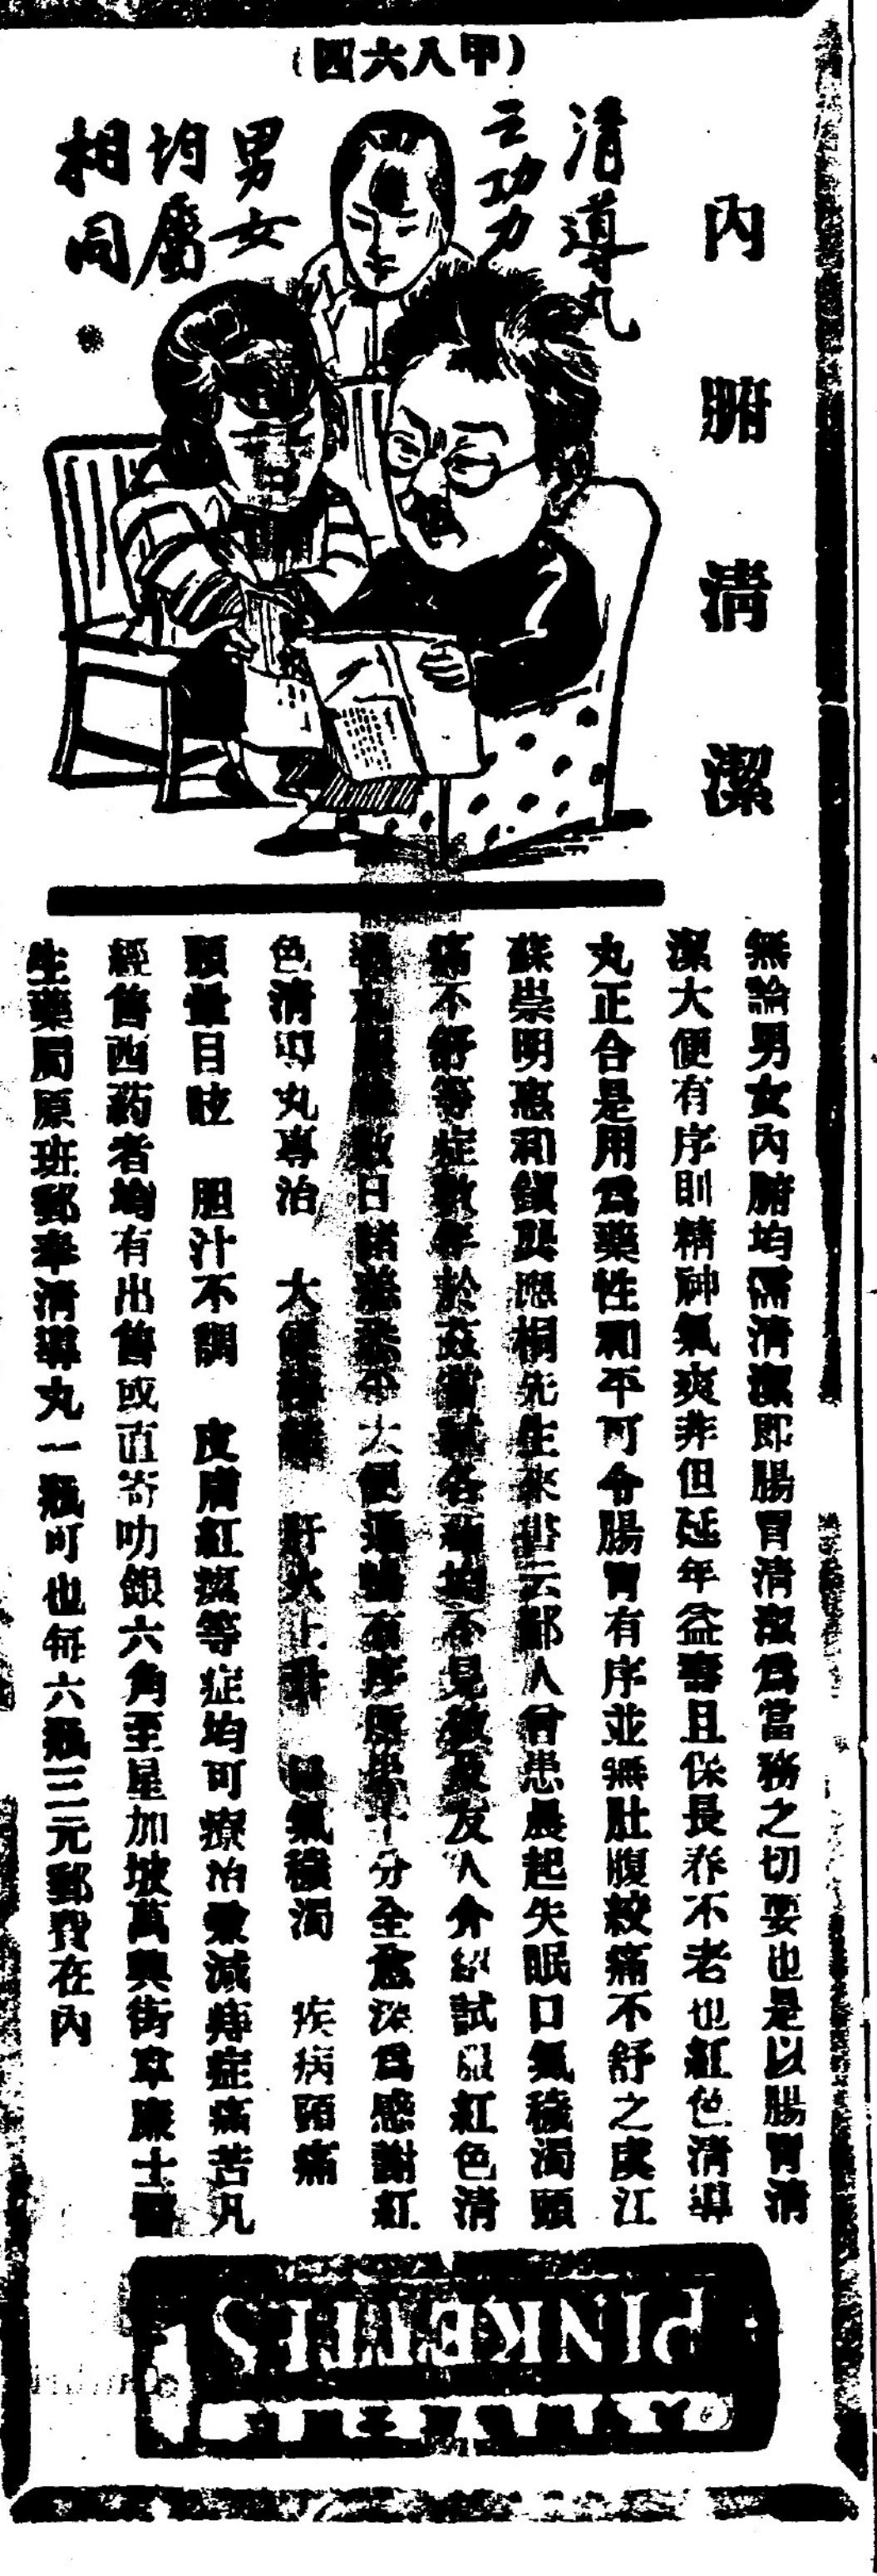 (甲八六四)
內腑清潔
清導丸
之功力
男女
均屬
相同
無論男女內腑均需清潔即腸胃清潔爲當務之切要也是以腸胃清
潔大便有序則精神氣爽非但延年益壽且保長春不老也紅色清導
丸正合是用爲藥性和平可令腸胃有序並無肚腹絞痛不舒之虞江
蘇崇明惠和鎮龔應桐先生來書云鄙人曾患晨起失眠口氣穢濁頭
痛不舒等症數年於茲嘗試各藥均不見效及友人介紹試服紅色清
導丸服數日諸恙大便通暢有序所患十分全愈深爲感謝紅
色清導丸專治 大便 肝火上升 口氣穢濁 疾病頭痛
頭暈目眩 胆汁不調 皮膚紅瘰等症均可療治兼減痔症痛苦凡
經售西药者均有出售或直寄叻銀六角至星加坡萬興街韋廉士醫
生藥局原班郵奉清導丸一瓶可也每六瓶三元郵費在內
PINKETTES